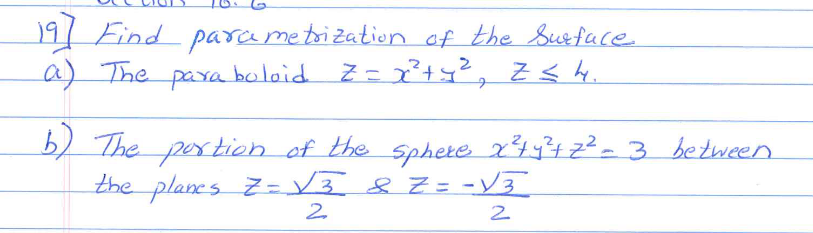 19] Find parametrization of the Surface
a) The paraboloid z = x²+y², z ≤ 4.
b) The portion of the sphere x²+y²+z² = 3 between
the planes z = √3/2 & z = -√3/2